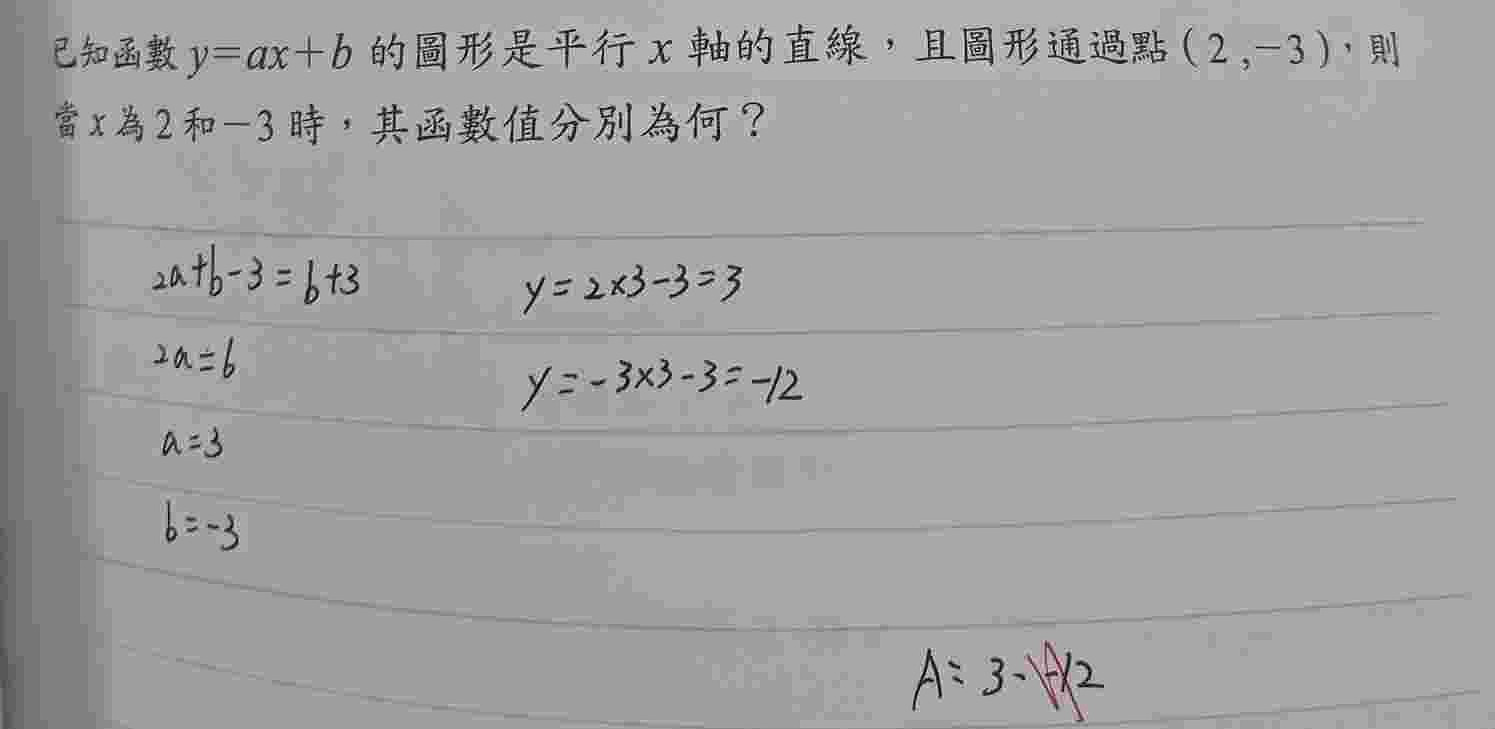 已知函數 y=ax+b 的圖形是平行 x 軸的直線，且圖形通過點(2,-3)，則
當 x 為 2 和 -3 時，其函數值分別為何？
2a+b-3=b+3
2a=6
a=3
b=-3
y=2×3-3=3
y=-3×3-3=-12
A: 3、-12